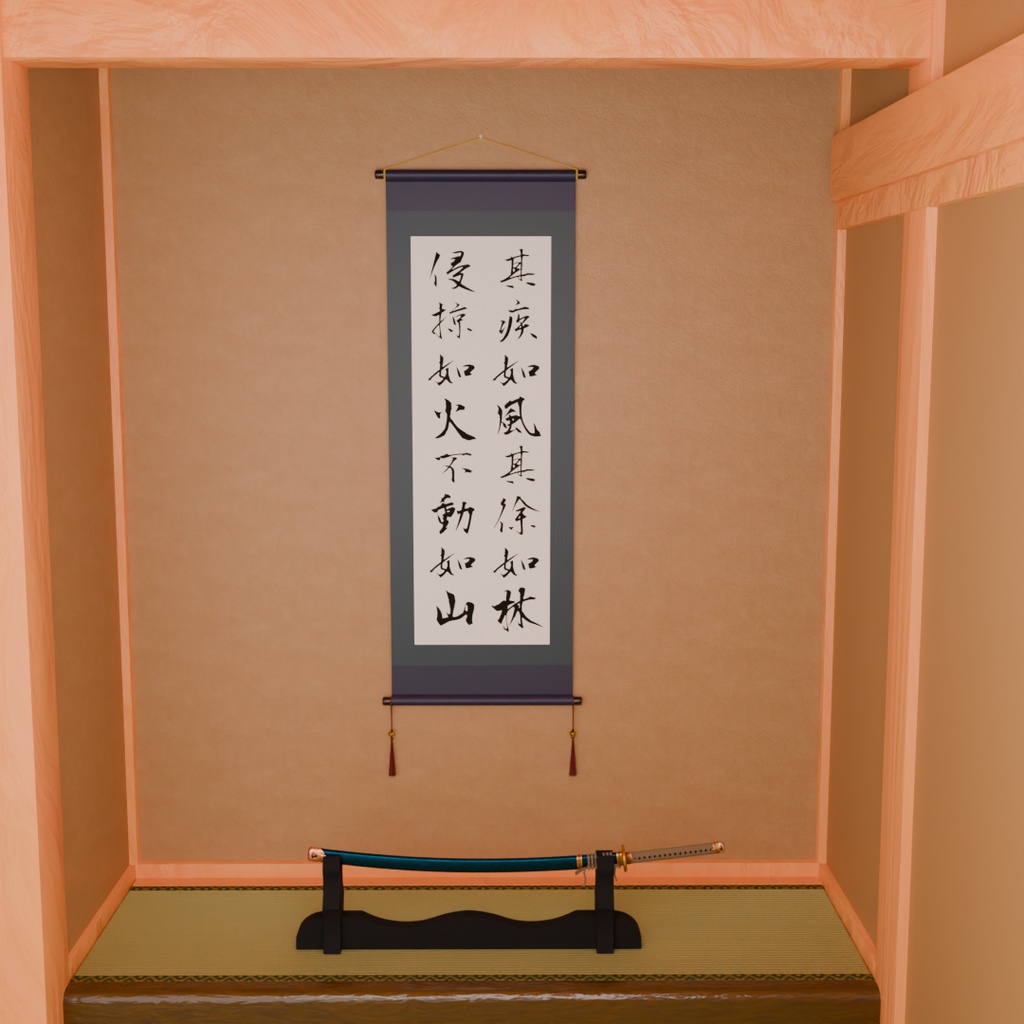 其疾如風其徐如林
侵掠如火不動如山